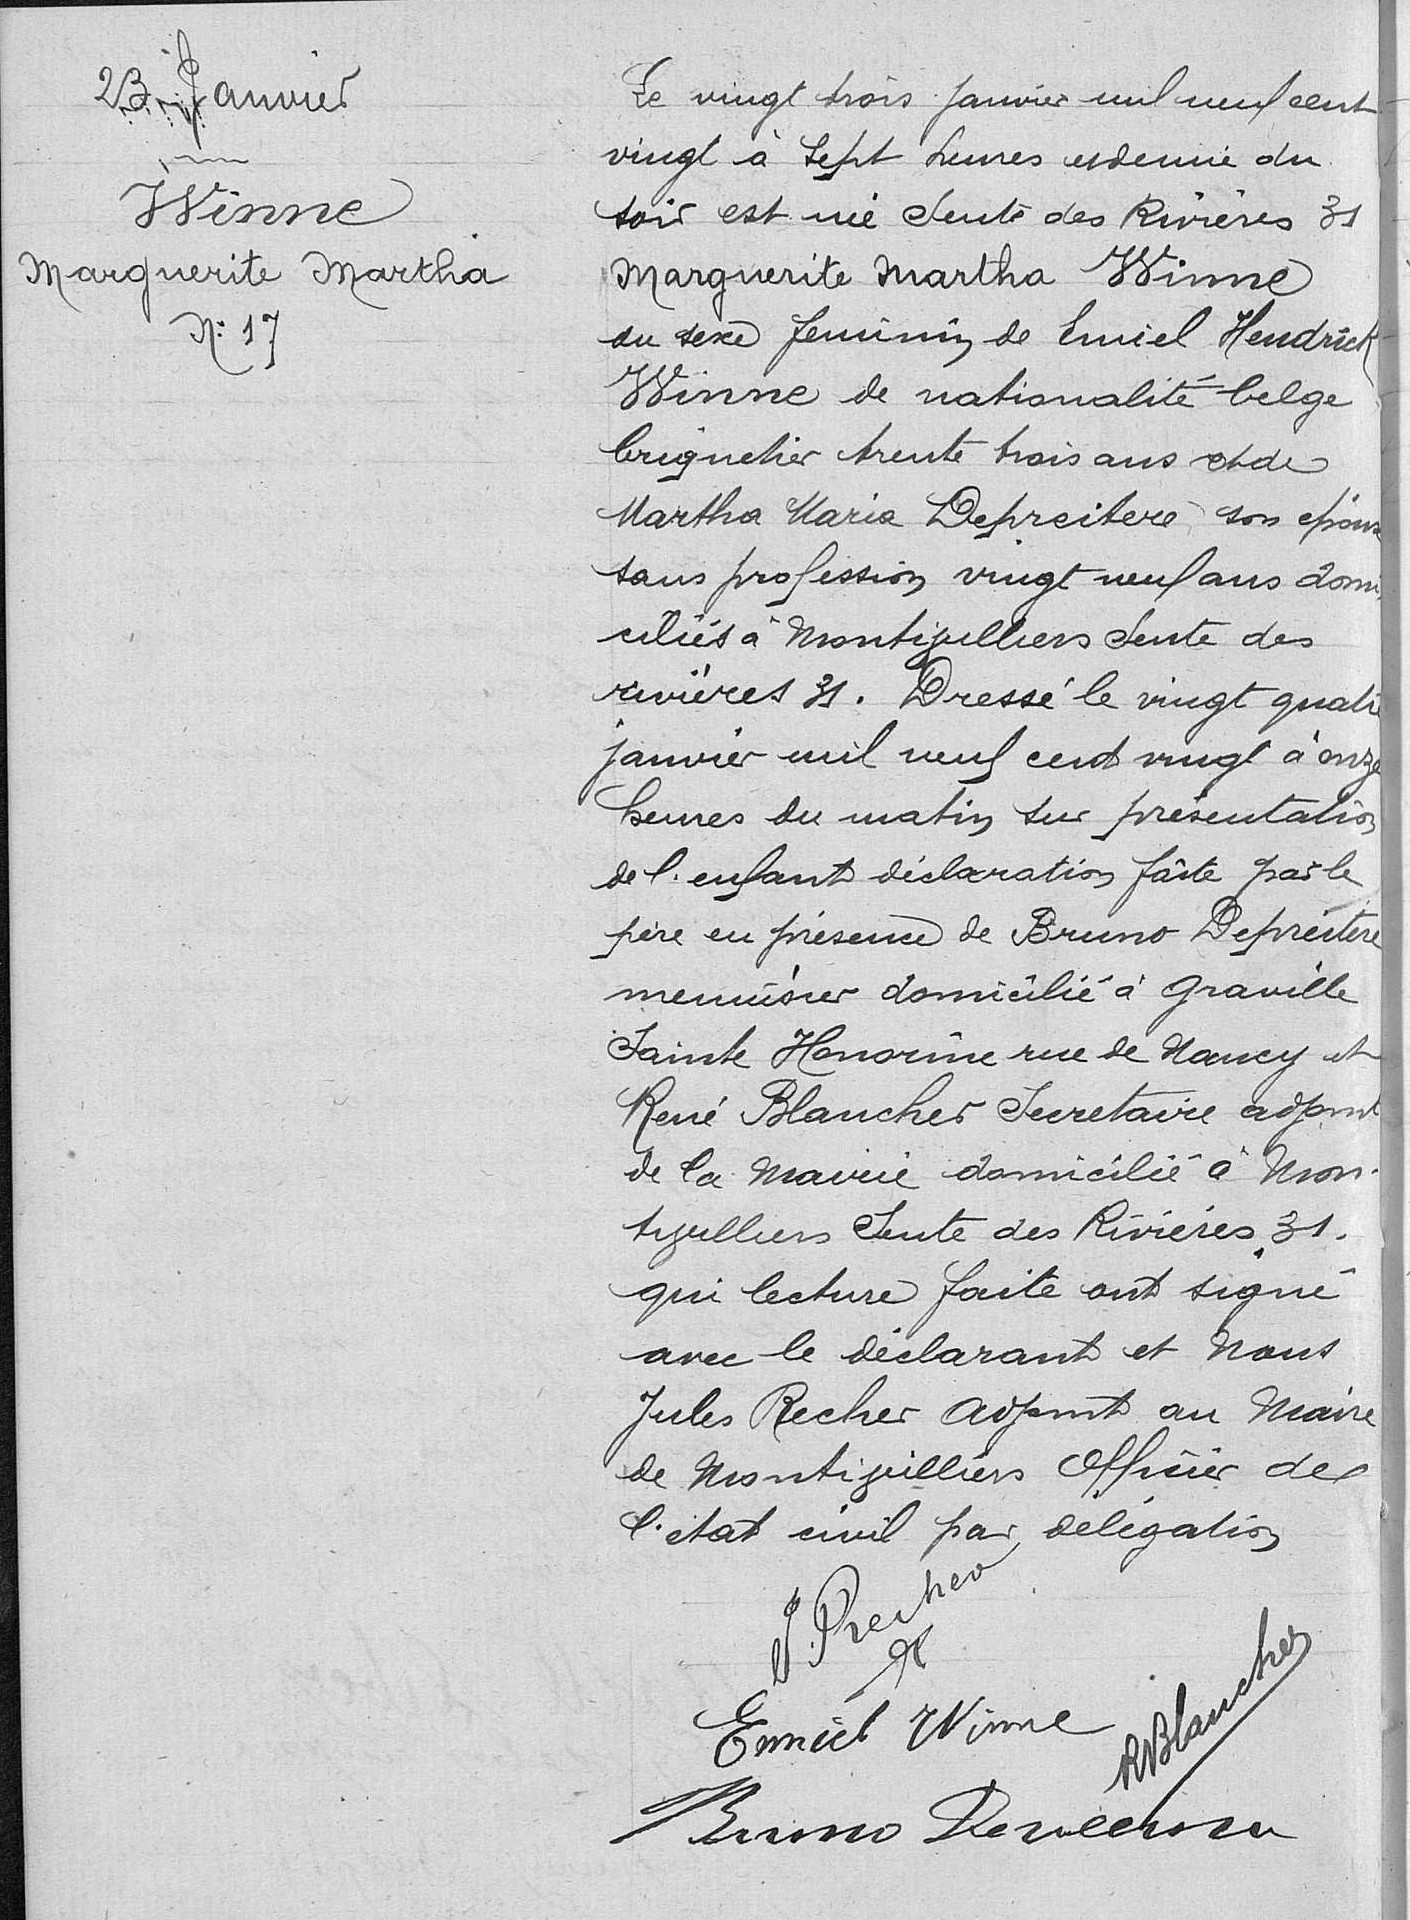 23 Janvier
Winne
Marguerite Martha
N: 17
Le vingt trois janvier mil neuf cent
vingt à sept heures et demie du
soir est née Sente des Rivières 31
Marguerite Martha Winne
du sexe feminin de Emiel Hendrick
Winne de nationalité belge
briquetier trente trois ans et de
Martha Maria Depreitere son épouse
sans profession vingt neuf ans domi
ciliés à Montivilliers Sente des
rivières 31. Dressé le vingt quatre
janvier mil neuf cent vingt à onze
heures du matin sur présentation
de l'enfant déclaration faite par le
père en présence de Bruno Depreitere
menuisier domicilié à Graville
Sainte Honorine rue de Nancy et
René Blancher Secretaire adjoint
de la Mairie domicilié à Mon-
tivilliers Sente des Rivières 31.
qui lecture faite ont signé
avec le déclarant et Nous
Jules Recher adjoint au Maire
de Montivilliers Officier de
l'état civil par délégation
J. Recher
Emiel Winne
RBlancher
Bruno